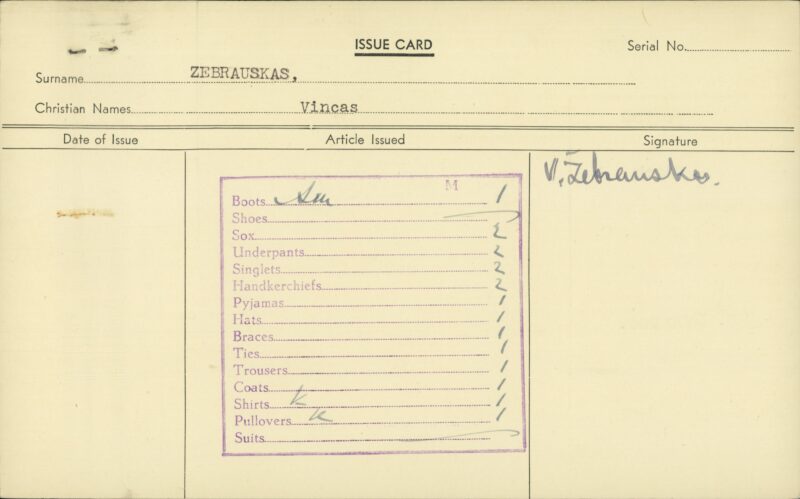 ISSUE CARD
Serial No.
Surname ZEBRAUSKAS,
Christian Names Vincas
Date of Issue Article Issued Signature
M
V. Žebrauskas.
Boots 1
Shoes
Sox 2
Underpants 2
Singlets 2
Handkerchiefs 2
Pyjamas 1
Hats 1
Braces 1
Ties 1
Trousers 1
Coats 1
Shirts K 1
Pullovers K 1
Suits